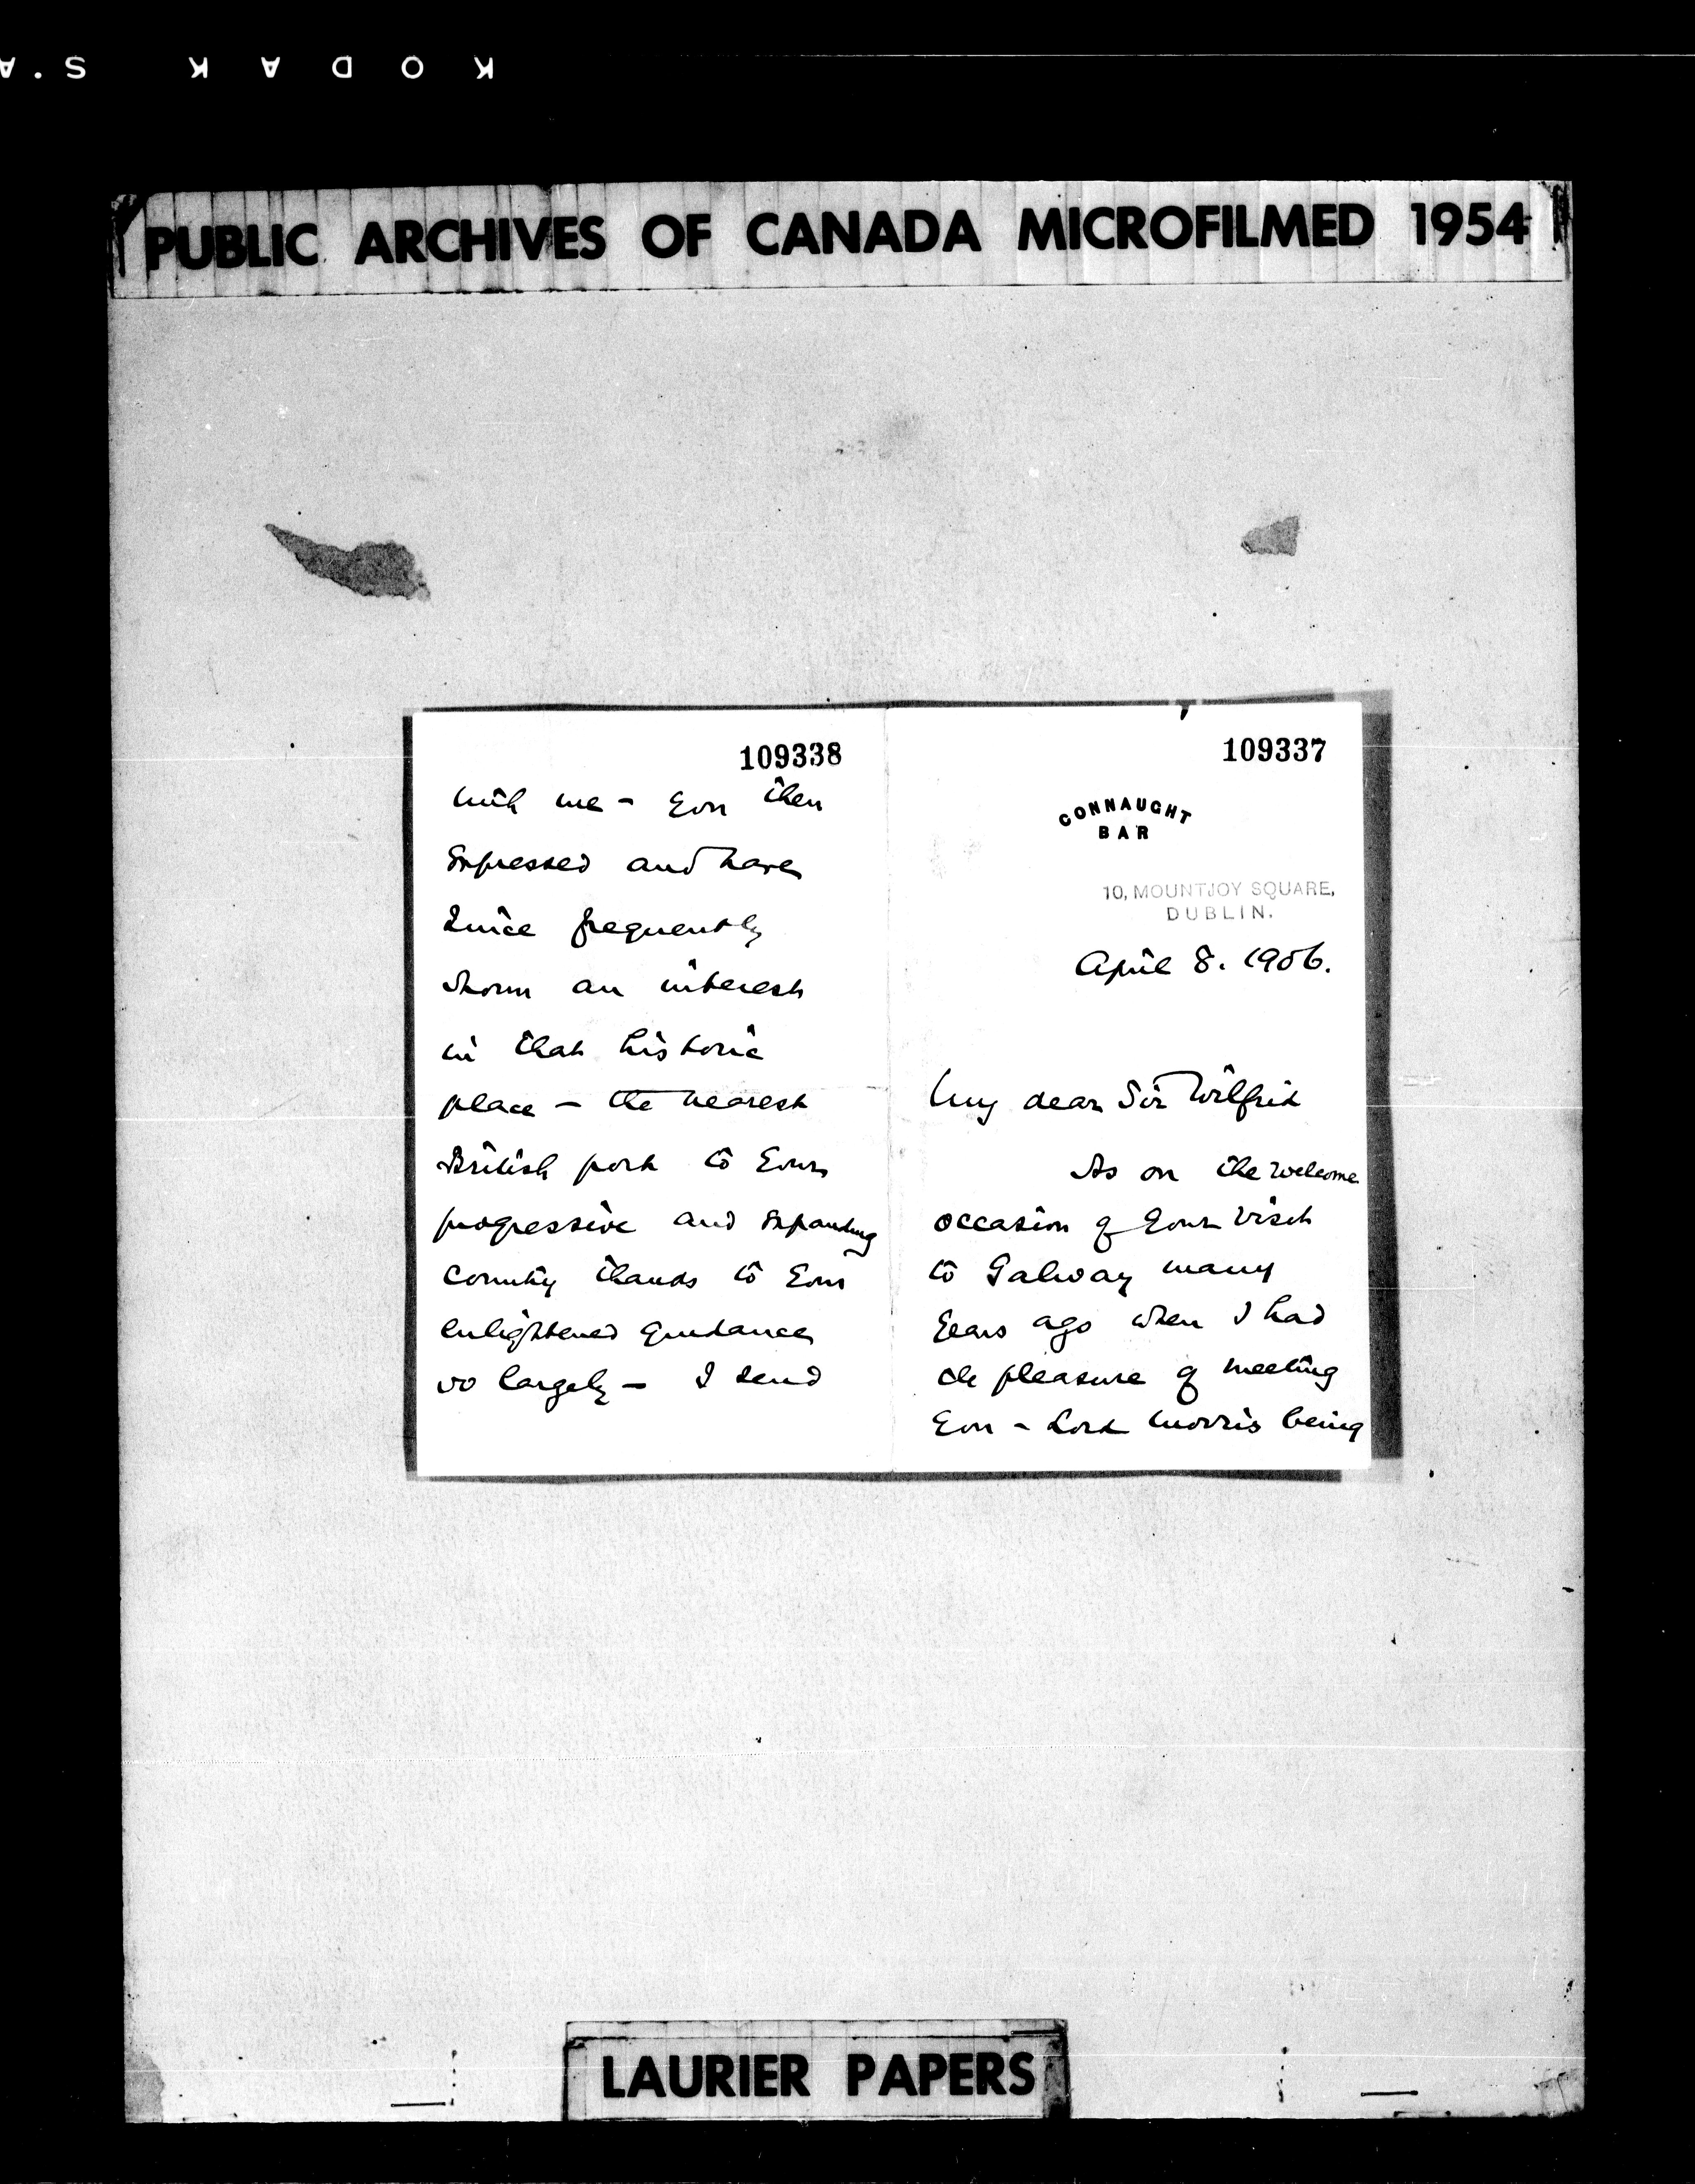 KODAK S.A
PUBLIC ARCHIVES OF CANADA MICROFILMED 1954
109337
CONNAUGHT
BAR
10, MOUNTJOY SQUARE,
DUBLIN.
April 8. 1906.
My dear Sir Wilfrid
As on the welcome
occasion of your visit
to Galway many
years ago when I had
the pleasure of meeting
you - Lord Morris being
109338
with me - you then
expressed and have
since frequently
shown an interest
in that historic
place - the nearest
British port to your
progressive and expanding
country thanks to your
enlightened guidance
so largely - I send
LAURIER PAPERS